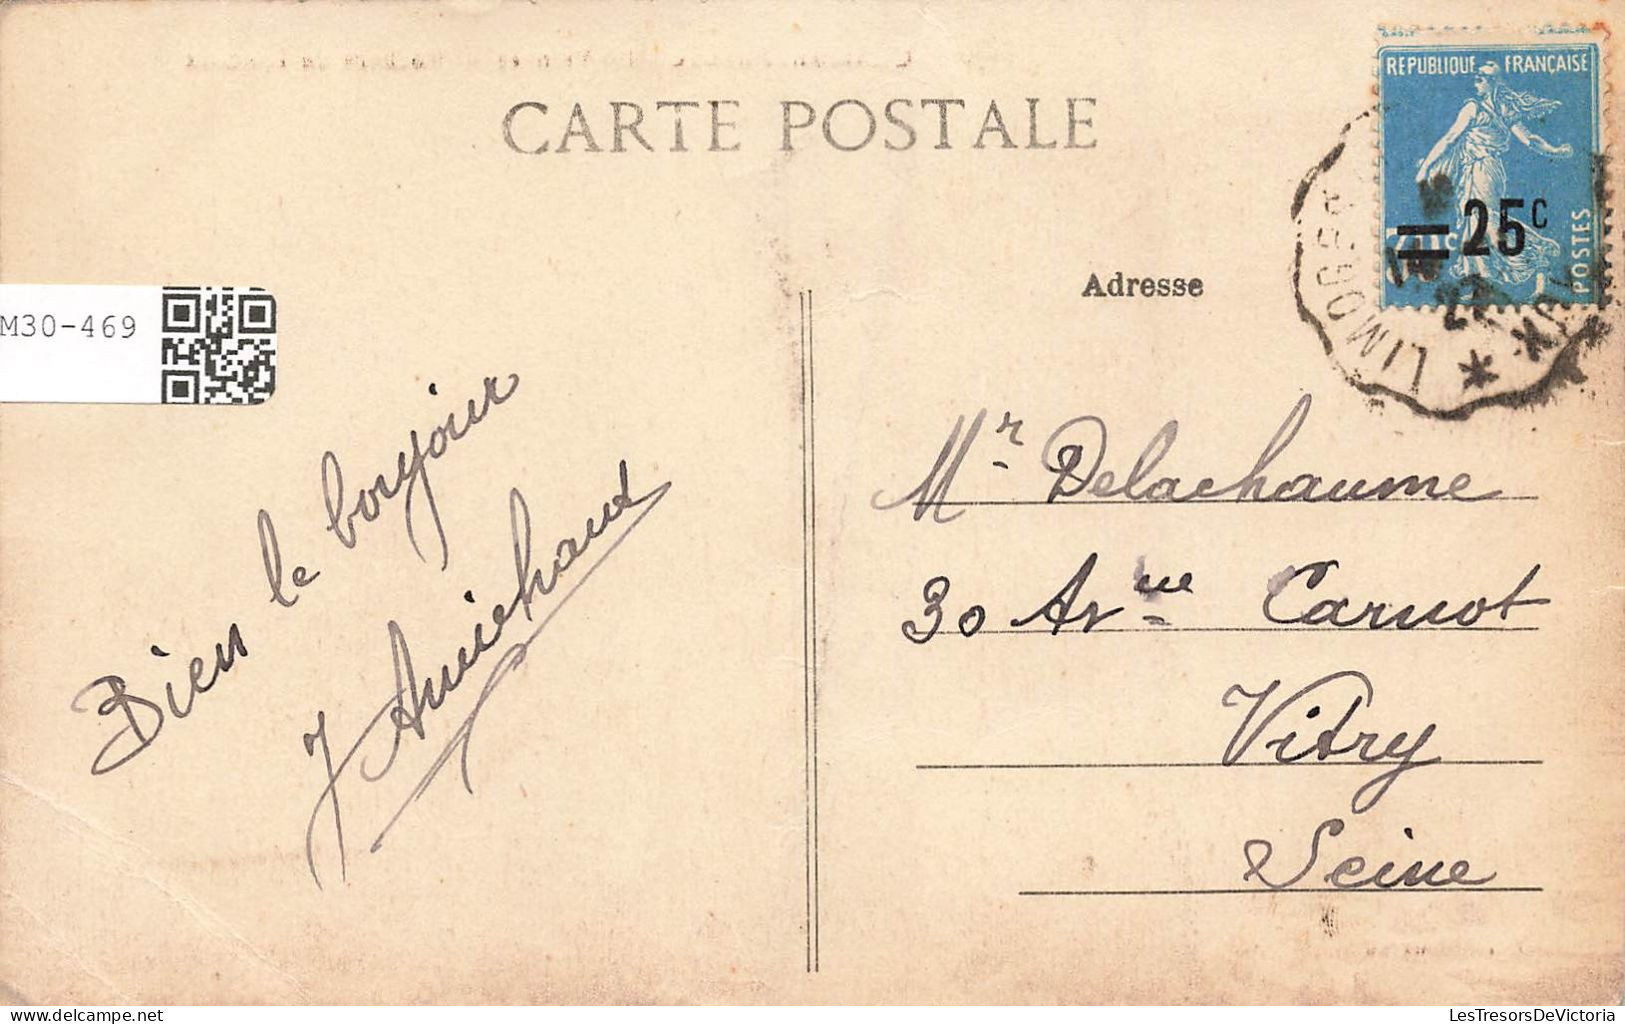 CARTE POSTALE
REPUBLIQUE FRANÇAISE
25c
POSTES
LIMOGES
M30-469
Adresse
Bien le bonjour
Mr Delachaume
30 Avnue Carnot
Vitry
Seine
LesTresorsDeVictoria